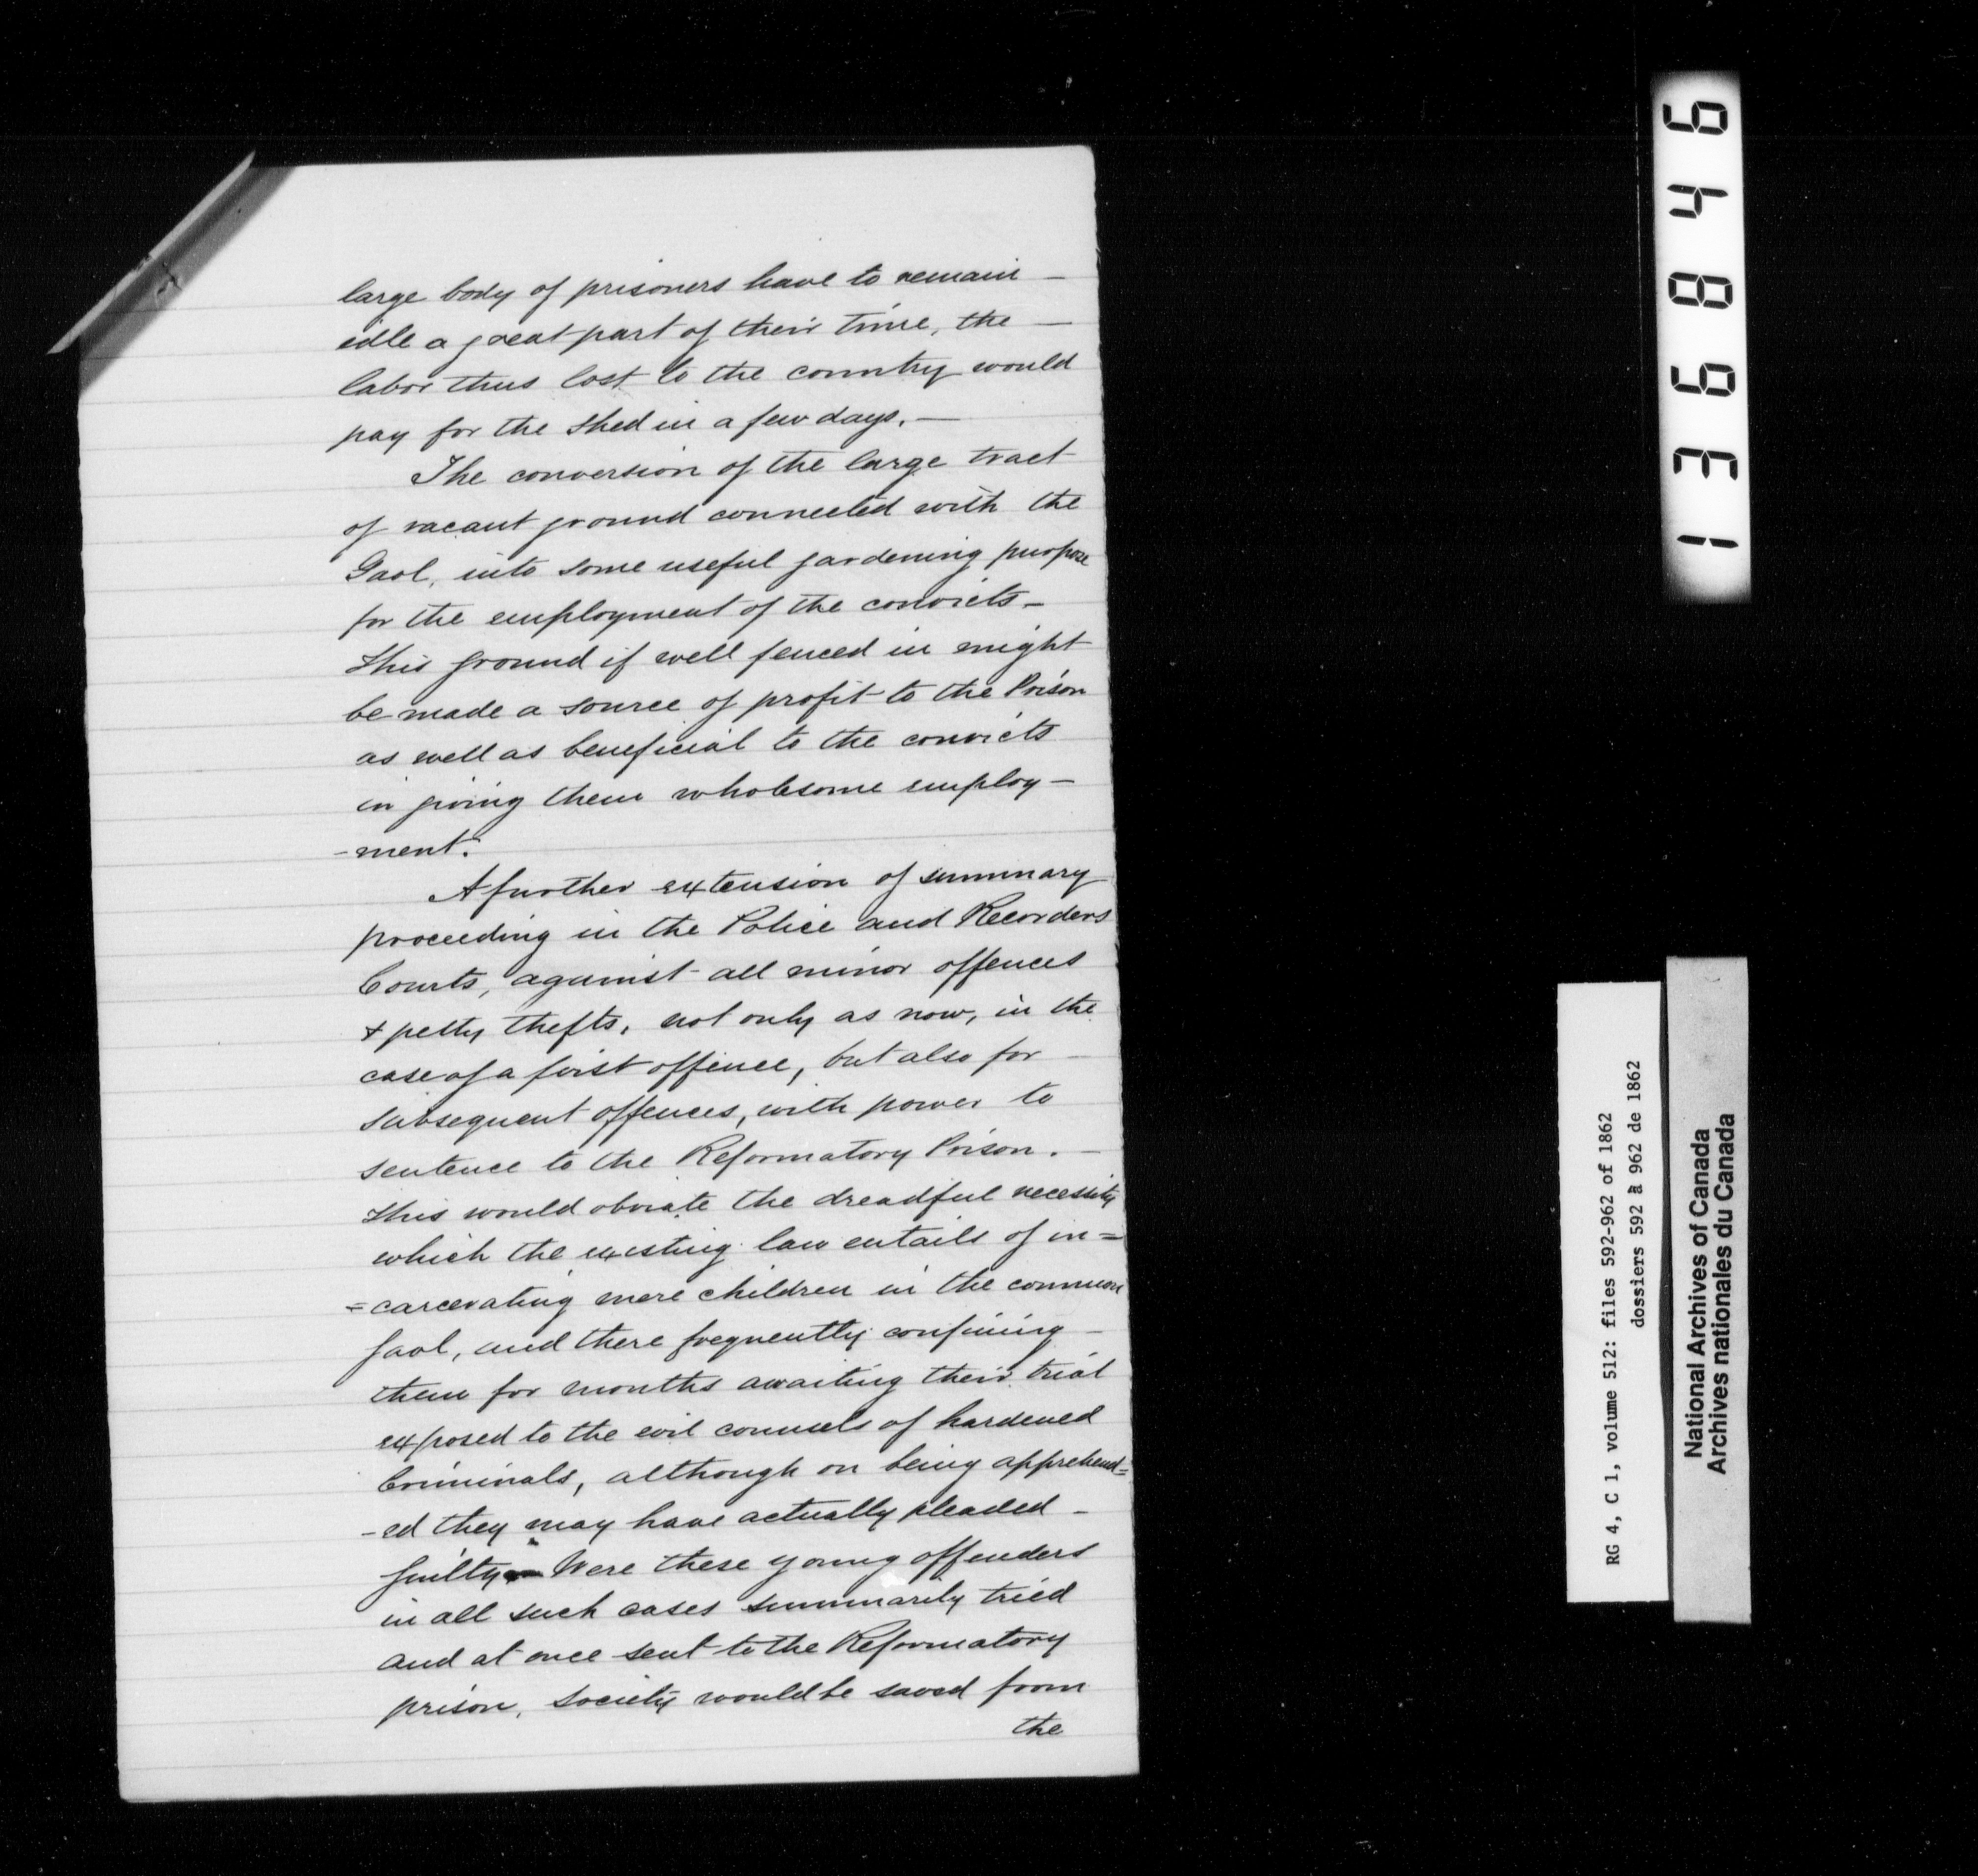 large body of prisoners have to remain —
idle a great part of their time, the —
labor thus lost to the country would
pay for the shed in a few days. —
The conversion of the large tract
of vacant ground connected with the
Gaol, into some useful gardening purpose
for the employment of the convicts —
this ground if well fenced in might
be made a source of profit to the Prison
as well as beneficial to the convicts
in giving them wholesome employ —
- ment.
A further extension of summary
proceeding in the Police and Recorders
Courts, against all minor offences
& petty thefts, not only as now, in the
case of a first offence, but also for —
subsequent offences, with power to
sentence to the Reformatory Prison. —
this would obviate the dreadful necessity
which the existing law entails of in =
= carcerating mere children in the common
Gaol, and there frequently confining —
them for months awaiting their trial
exposed to the evil counsels of hardened
Criminals, although on being apprehend=
- ed they may have actually pleaded -
guilty — Were these young offenders
in all such cases summarily tried
and at once sent to the Reformatory
prison, society would be saved from
the
136846
RG 4, C 1, volume 512: files 592-962 of 1862
dossiers 592 à 962 de 1862
National Archives of Canada
Archives nationales du Canada